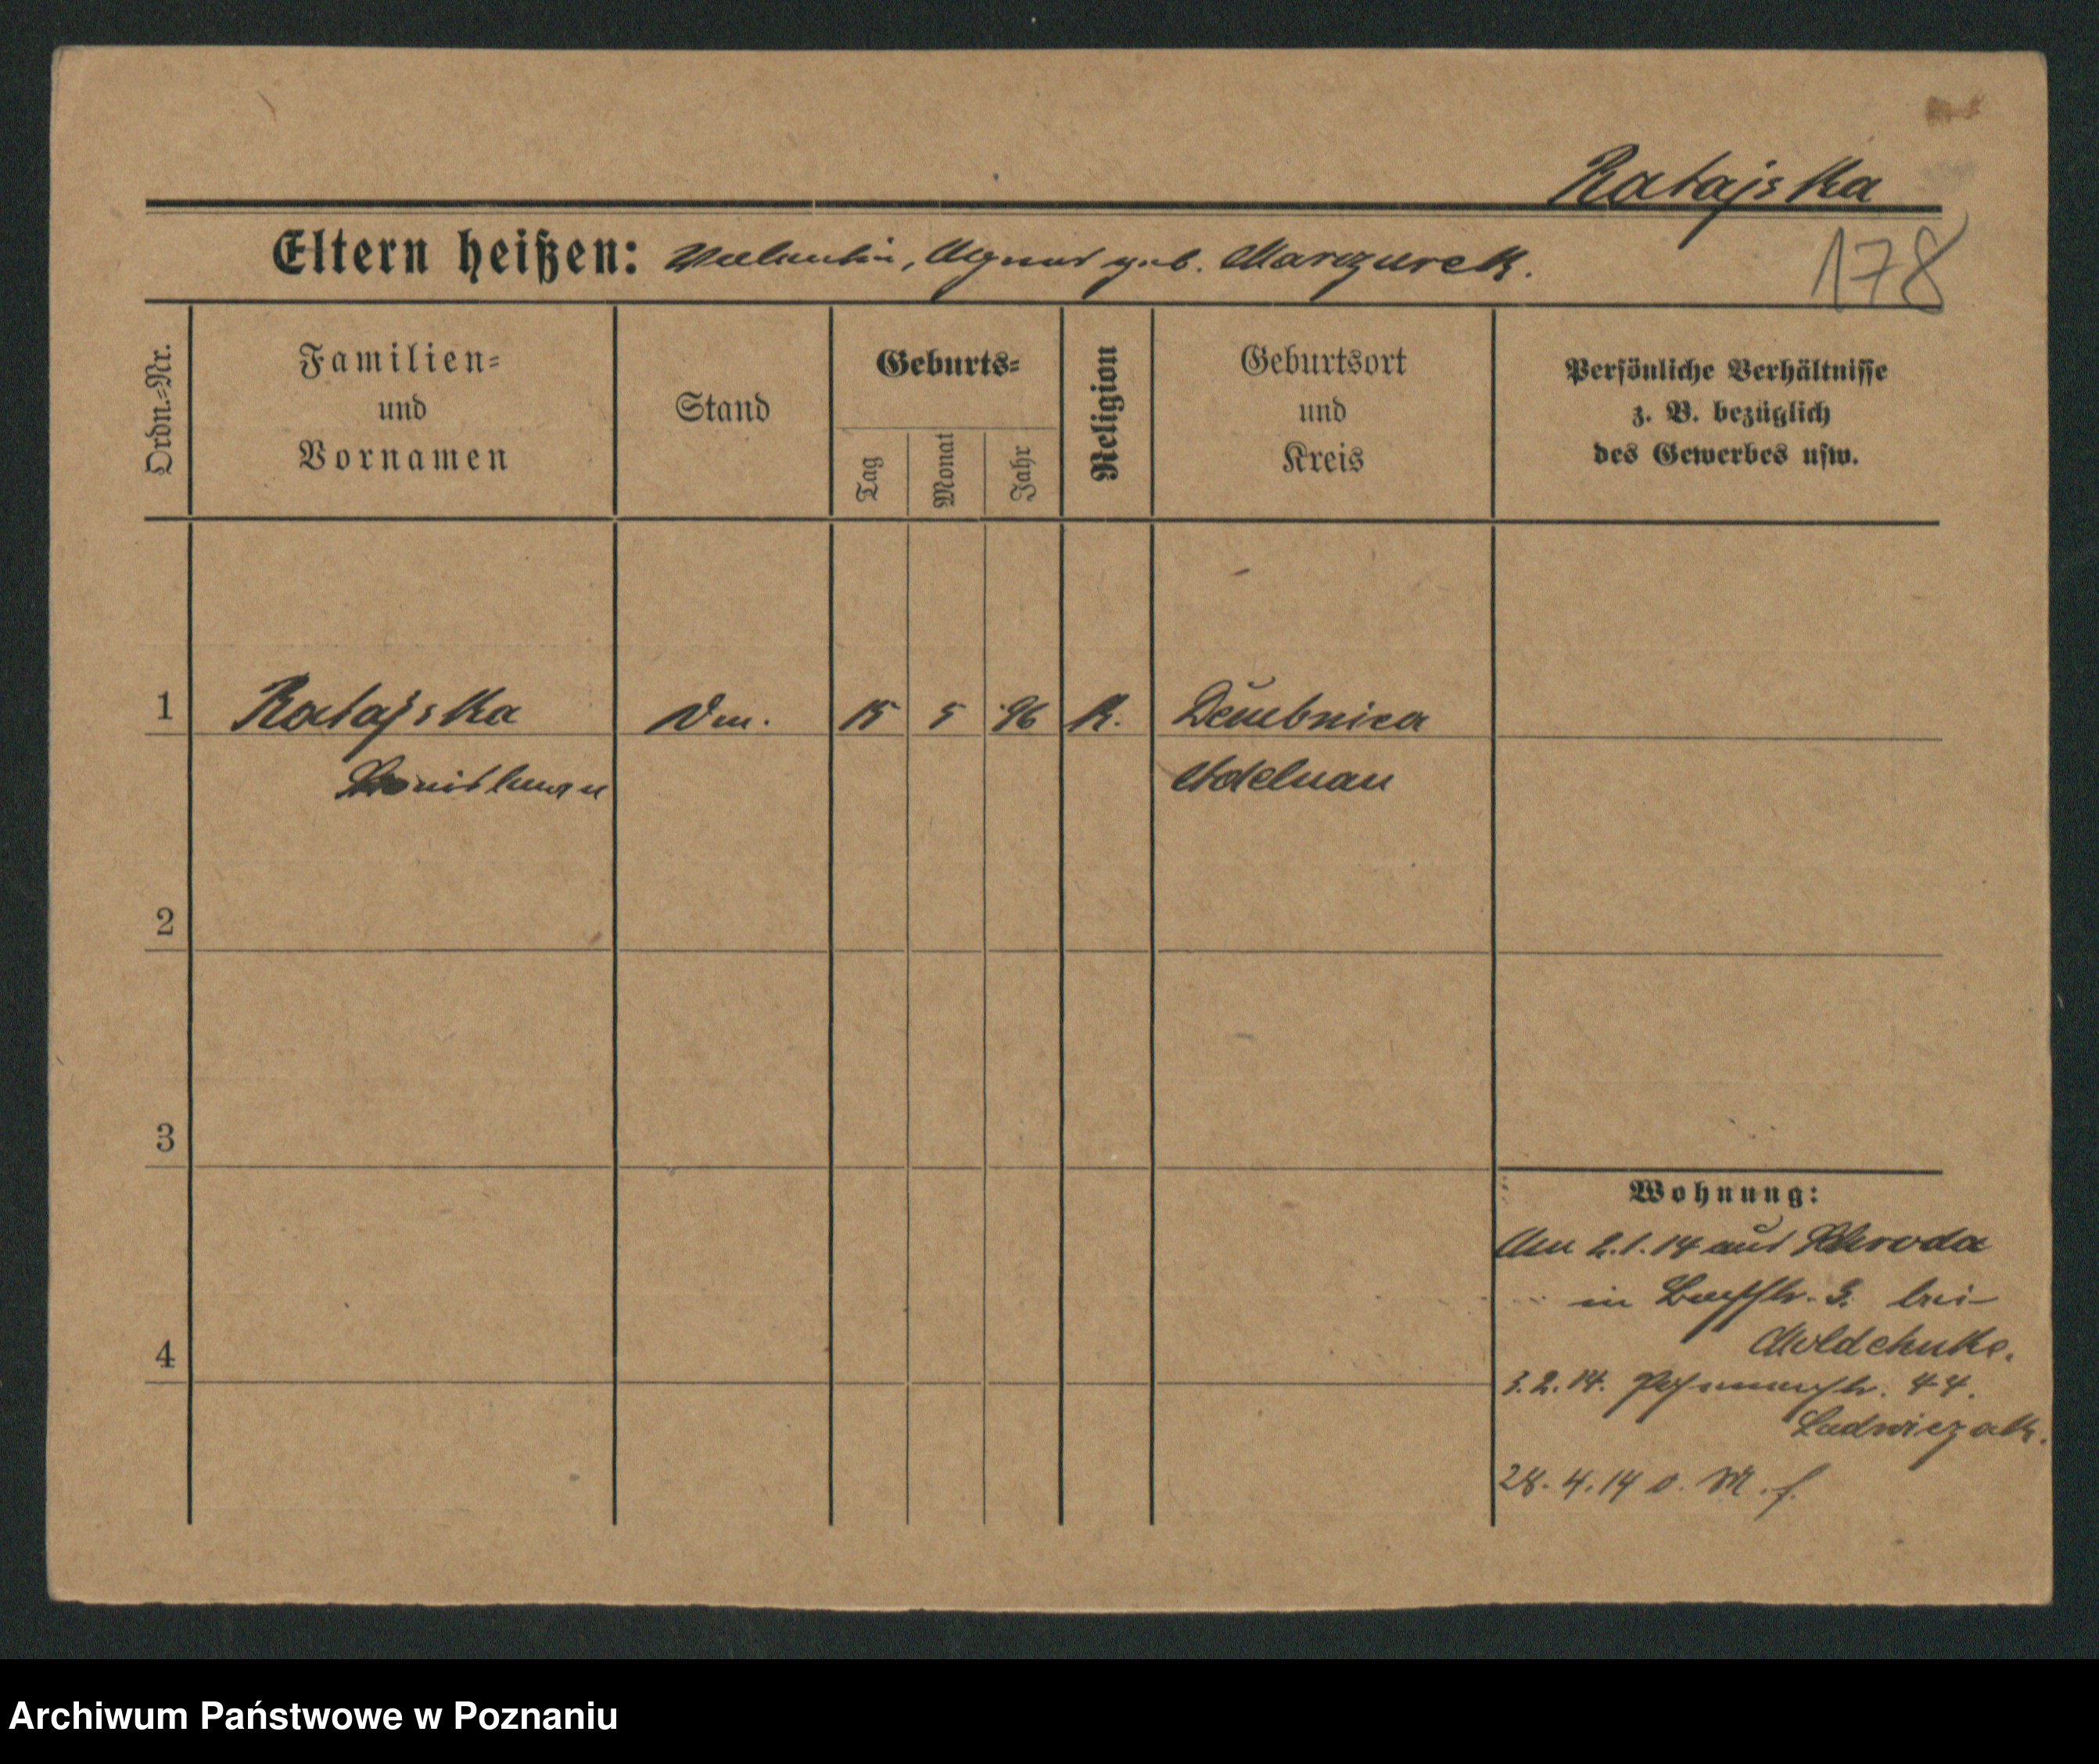 Ratajska
178
Eltern heißen: Valentin, Agnes geb. Marczurek.
Ordn.-Nr.
Familien-
und
Vornamen
Stand
Geburts-
Tag
Monat
Jahr
Religion
Geburtsort
und
Kreis
Persönliche Verhältnisse
z. B. bezüglich
des Gewerbes usw.
1 Ratajska Dm. 15 5 96 K. Dembnica
Adelnau
2
3
4
Wohnung:
Am 2.1.14 aus Schroda
in 3. bei
3.2.14. 44.
Ludwiczak.
28.4.14 o. M. f.
Archiwum Państwowe w Poznaniu